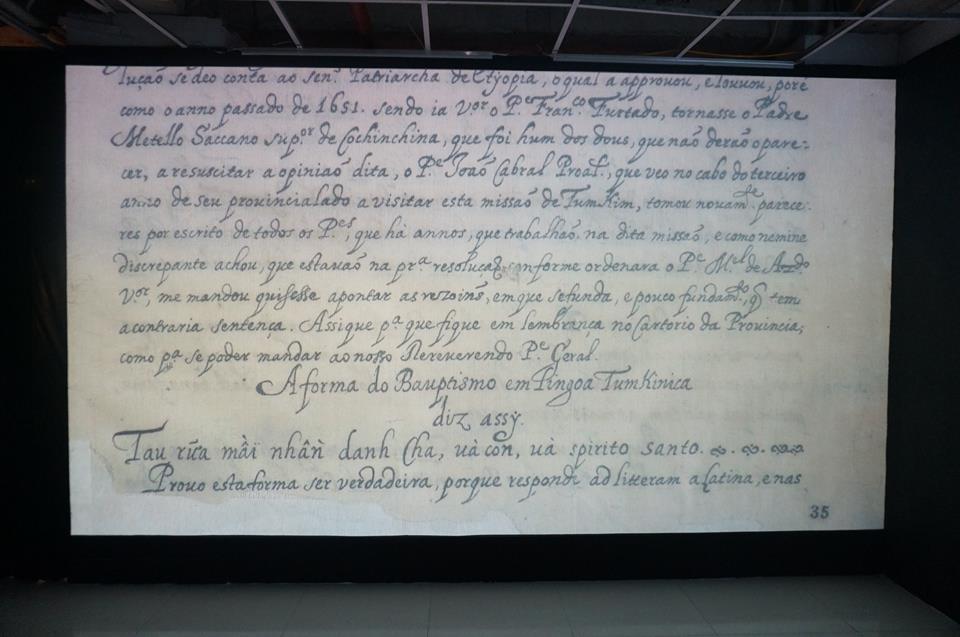 luçaõ se deo conta ao senr. Patriarcha de Etyopia, o qual a approvou, e louvou, porē
como o anno passado de 1651. sendo ia Vor. o Pe. Franco. Furtado, tornasse o Padre
Metello Saccano supor. de Cochinchina, que foi hum dos dous, que não deraõ o pare-
cer, a resuscitar a opiniaõ dita, o Pe. Joaõ Cabral Proal., que veo no cabo do terceiro
anno de seu provincialado a visitar esta missaõ de TumKim, tomou novamte. parece-
res por escrito de todos os Pes, que há annos, que trabalhaõ na dita missaõ, e como nemine
discrepante achou, que estavaõ na pra. resoluçaõ conforme ordenara o Pe. Mel. de Azdo
Vor, me mandou quisesse apontar as rezoins, em que se funda, e pouco fundamto., q tem
a contraria sentença. Assi que pa. que fique em lembrança no Cartorio da Provincia,
como pa. se poder mandar ao nosso Rereverendo Pe. Geral.
A forma do Bauptismo em Lingoa TumKinica
diz assy.
Tau rửa mầï nhân danh Cha, uà con, uà spirito santo.
Provo esta forma ser verdadeira, porque respondi ad litteram a Latina, e nas
35